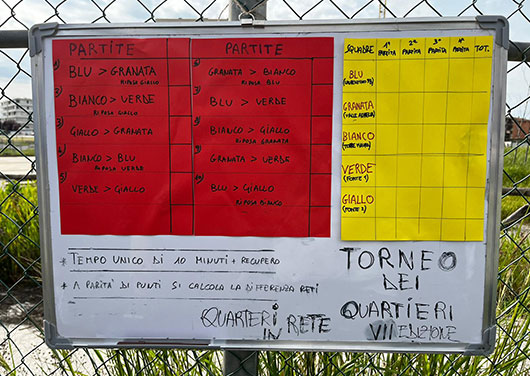 PARTITE
1) BLU > GRANATA
RIPOSA GIALLO
2) BIANCO > VERDE
RIPOSA BLU
3) GIALLO > GRANATA
4) BIANCO > BLU
RIPOSA VERDE
5) VERDE > GIALLO
PARTITE
GRANATA > BIANCO
RIPOSA BLU
BLU > VERDE
BIANCO > GIALLO
RIPOSA GRANATA
GRANATA > VERDE
BLU > GIALLO
RIPOSA BIANCO
SQUADRE 1ª PARTITA 2ª PARTITA 3ª PARTITA 4ª PARTITA TOT.
BLU
GRANATA
BIANCO
VERDE
(FONTE 1)
GIALLO
(FONTE 2)
* TEMPO UNICO DI 10 MINUTI + RECUPERO
* A PARITA' DI PUNTI SI CALCOLA LA DIFFERENZA RETI
QUARTERI
IN RETE
TORNEO
DEI
QUARTIERI
VII EDIZIONE